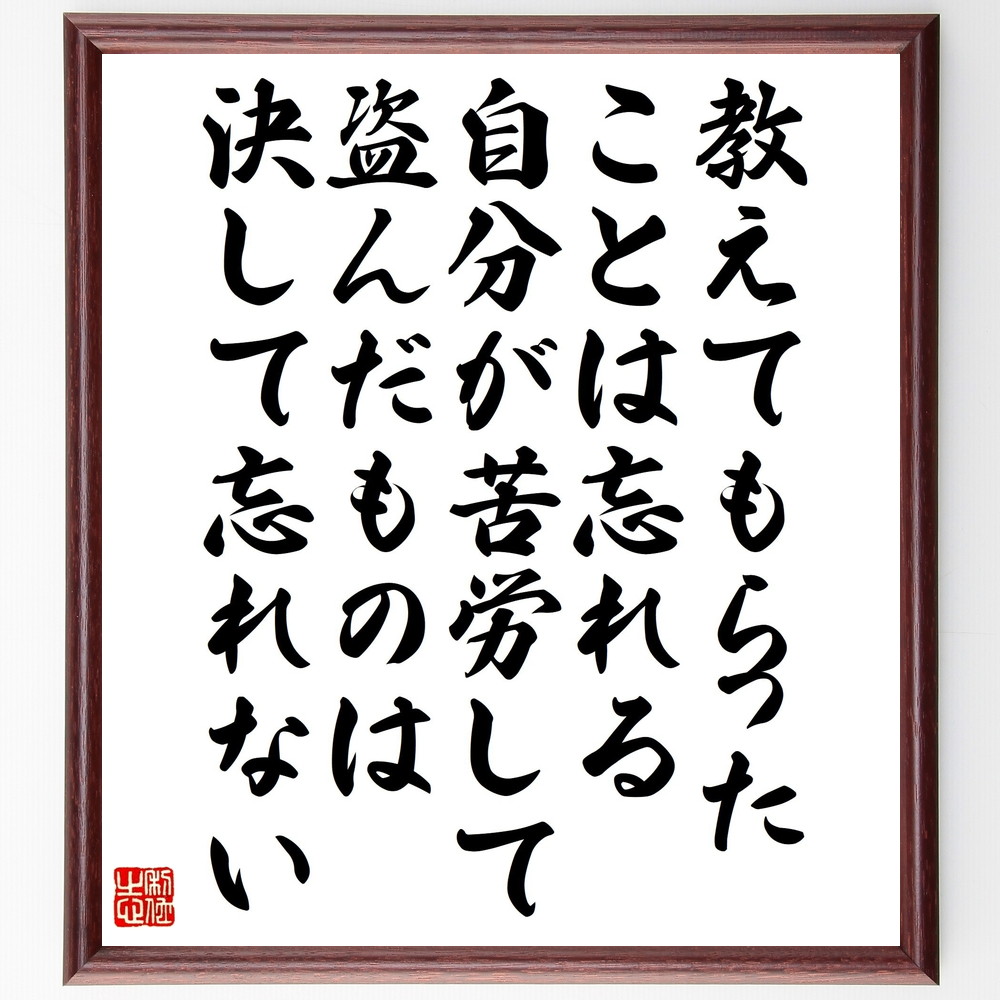 教えてもらった
ことは忘れる
自分が苦労して
盗んだものは
決して忘れない